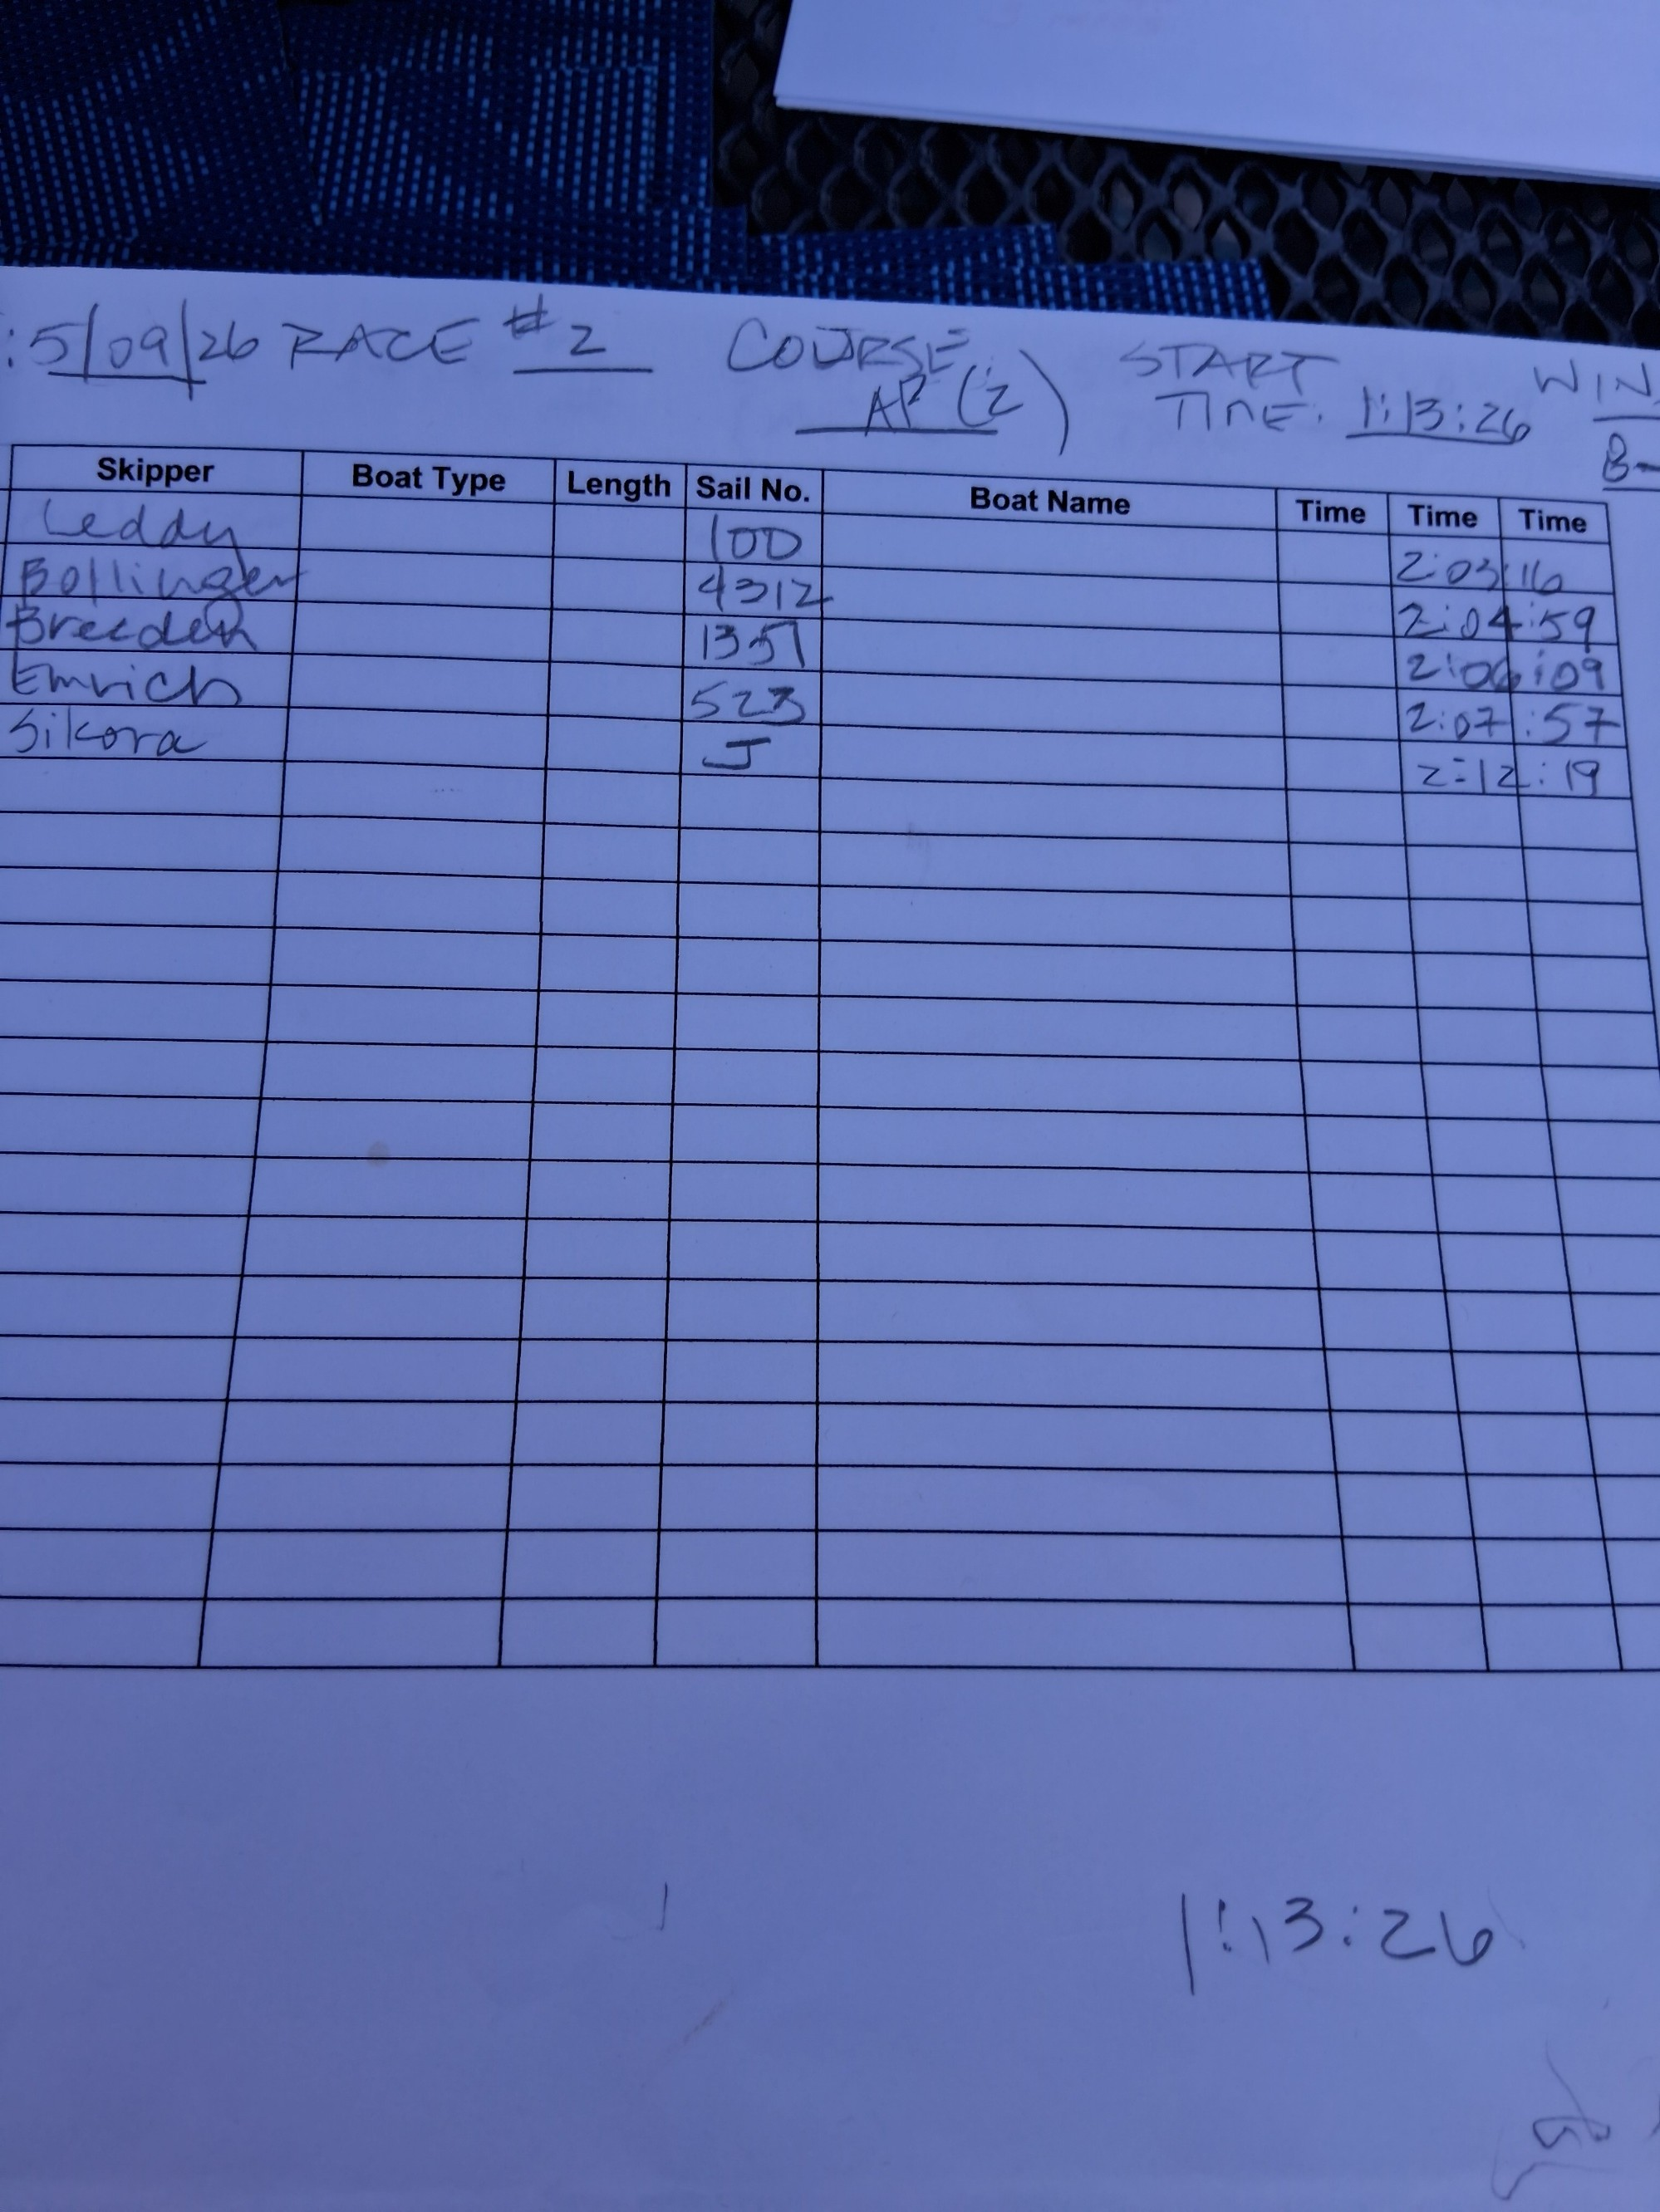 : 5/09/26 RACE #2 COURSE AP (2) START TIME: 1:13:26 WIN
B-
Skipper Boat Type Length Sail No. Boat Name Time Time Time
Leddy 100 2:03:16
Bollinger 4312 2:04:59
Breeden 1351 2:06:09
Emrich 523 2:07:57
Sikora J 2:12:19
1:13:26